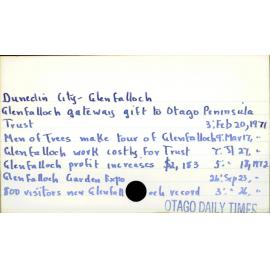 Dunedin City - Glenfalloch
Glenfalloch gateway gift to Otago Peninsula
Trust 3: Feb 20, 1971
Men of Trees make tour of Glenfalloch 9: Mar 17, "
Glenfalloch work costly for Trust 27, "
Glenfalloch profit increases $2,183 5: " 17, 1972
Glenfalloch Garden Expo 26: Sep 23, "
800 visitors new Glenfalloch record 3: " 26, "
OTAGO DAILY TIMES